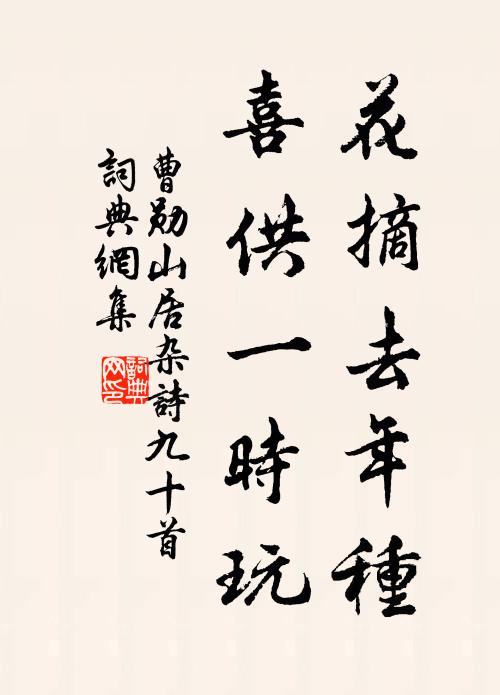 花摘去年種
喜供一時玩
曹勛山居杂詩九十首
詞典網集
詞典網印